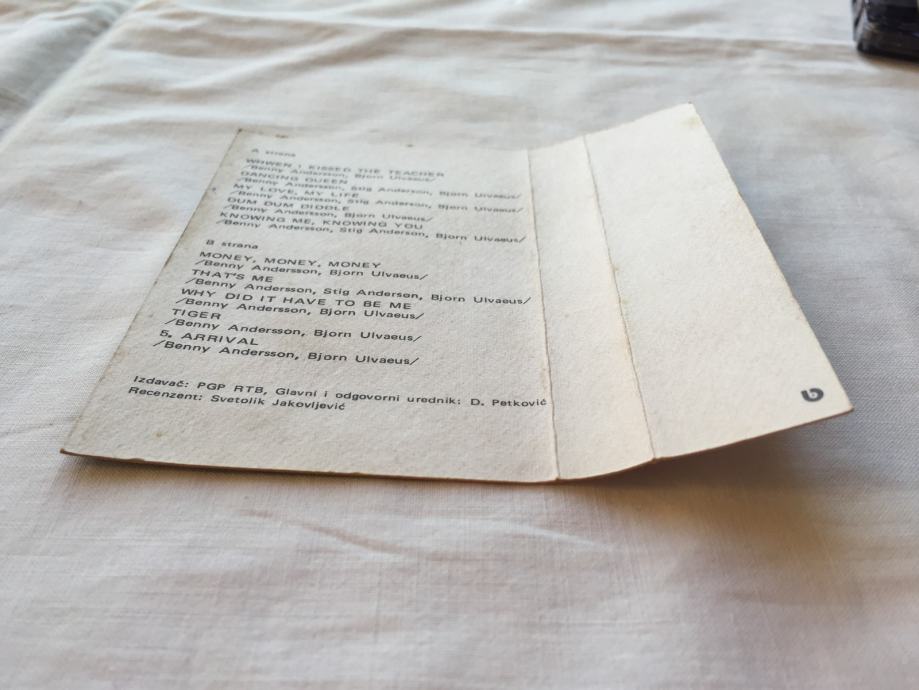 A strana
WHWEN I KISSED THE TEACHER
/Benny Andersson, Bjorn Ulvaeus/
DANCING QUEEN
/Benny Andersson, Stig Anderson, Bjorn Ulvaeus/
MY LOVE, MY LIFE
/Benny Andersson, Stig Anderson, Bjorn Ulvaeus/
DUM DUM DIDDLE
/Benny Andersson, Bjorn Ulvaeus/
KNOWING ME, KNOWING YOU
/Benny Andersson, Stig Anderson, Bjorn Ulvaeus/
B strana
MONEY, MONEY, MONEY
/Benny Andersson, Bjorn Ulvaeus/
THAT'S ME
/Benny Andersson, Stig Anderson, Bjorn Ulvaeus/
WHY DID IT HAVE TO BE ME
/Benny Andersson, Bjorn Ulvaeus/
TIGER
/Benny Andersson, Bjorn Ulvaeus/
5. ARRIVAL
/Benny Andersson, Bjorn Ulvaeus/
Izdavač: PGP RTB, Glavni i odgovorni urednik: D. Petković
Recenzent: Svetolik Jakovljević